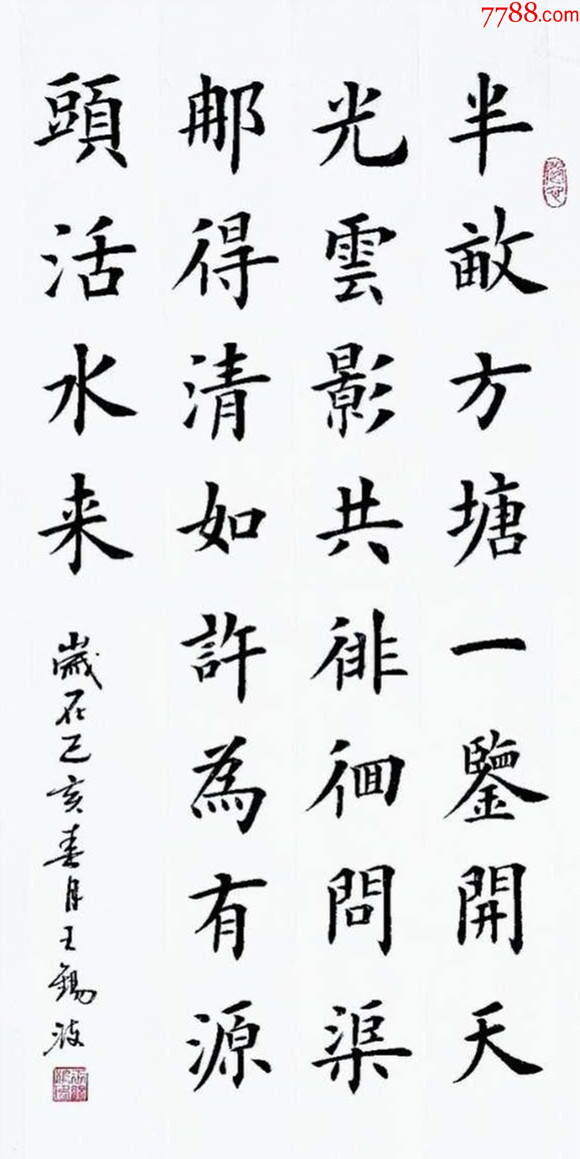 7788.com
半畝方塘一鑒開天
光雲影共徘徊問渠
那得清如許為有源
頭活水来
歲在己亥春月王錫波